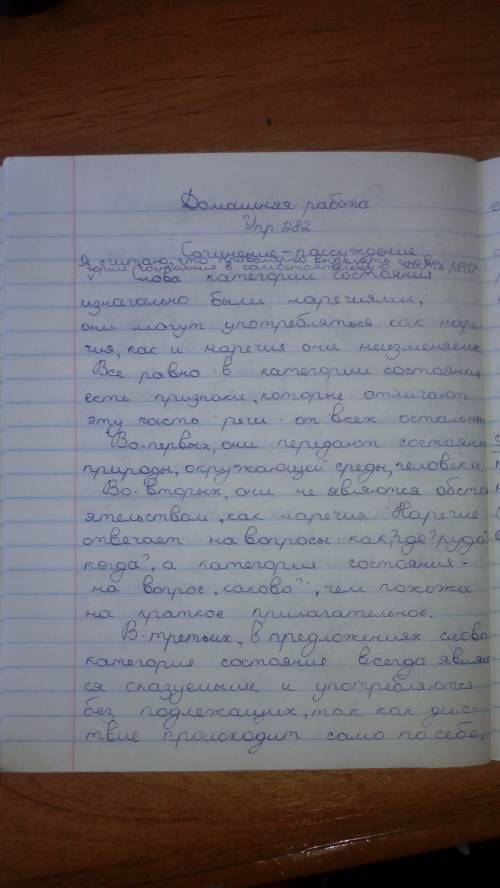 Домашняя работа
Упр 282
Сочинение-рассуждение
Я считаю, что
состояния в самостоятельную часть речи
Слова категории состояния
изначально были наречиями,
они могут употребляться как наре
чия, как и наречия они неизменяемы
Все равно в категории состояния
есть признаки, которые отличают
эту часть речи от всех остальн
Во-первых, они передают состояни
природы, окружающей среды, человека
Во-вторых, они не являются обсто
ятельством, как наречия. Наречие
отвечает на вопросы: как? где? куда?
когда?, а категория состояния-
на вопрос „каково?", чем похожа
на краткое прилагательное.
В-третьих, в предложениях слова
категория состояния всегда являю
ся сказуемыми и употребляются
без подлежащих, так как дейс-
твие происходит само по себе,